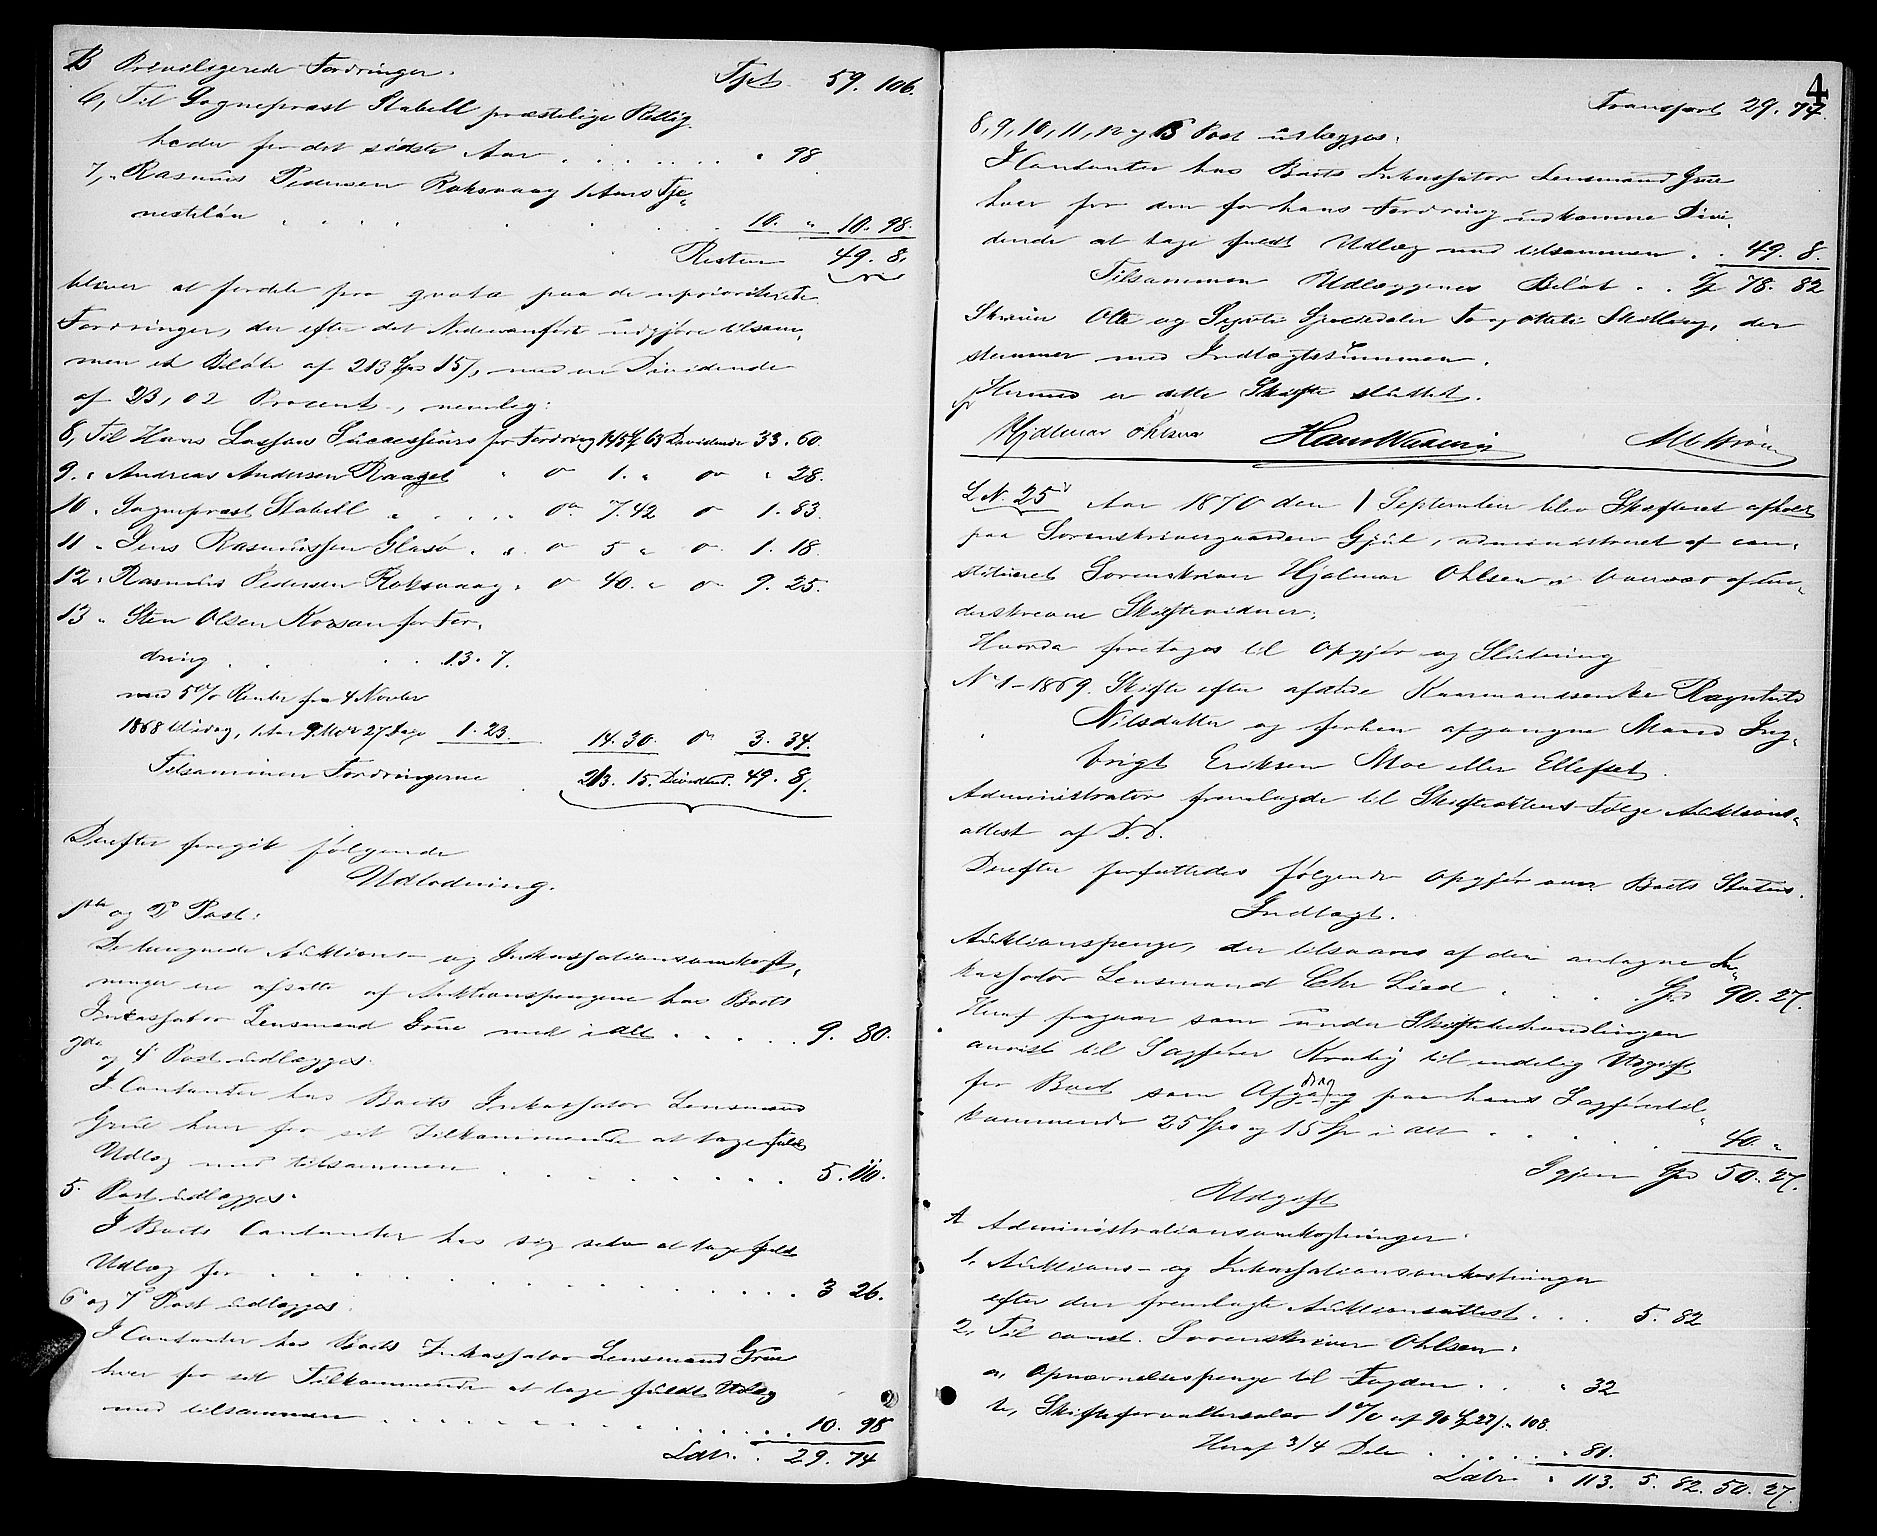 B Privilegerede Fordringer. Tpt. 59. 106.
6, Til Sognepræst Stabell præstelige Rettig-
heder for det sidste Aar . . . . . . " 98
7, " Rasmus Pedersen Roksvaag 1 Aars Tje-
nesteløn " . . . . . 10. " 10. 98.
Resten 49. 8.
bliver at fordele pro qvota paa de uprioriterte
Fordringer, der efter det Nedenanførte udgjøre tilsam-
men et Beløb af 213 Spd 15 s, med en Dividende
af 23,02 Procent, nemlig:
8, Til Hans Lossius Successeurs for Fordring 145 Sp 63 Dividende 33. 60.
9. " Andreas Andersen Raaget " do 1. " do " 28.
10. " Sognepræst Stabell " . . . . do 7. 42 do 1. 83.
11 " Jens Rasmussen Glasø . . do 5 " do 1. 18.
12. " Rasmus Pedersen Roksvaag " do 40. " do 9. 25.
13 " Sten Olsen Korsan for For-
dring . . . . 13. 7.
med 5 % Renter fra 4 Novbr
1868 til idag, 1 Aar 9 Mdr 27 Dage 1. 23. 14. 30. do 3. 34.
Tilsammen Fordringerne 213. 15. Dividend. 49. 8.
Derefter foregik følgende
Udlodning.
1ste og 2 Post:
De beregnede Auktions- og Inkassationsomkost-
ninger ere afsatte af Auktionspengene hos Boets
Inkassator Lensmand Grüe med i alt . . . . . 9. 80.
3die og 4 Post udlægges:
I Contanter hos Boets Inkassator Lensmand
Grüe hver for sit Tilkommende at tage fuldt
Udlæg med tilsammen . . . . . . . 5. 110.
5 Post udlægges:
I Boets Contanter hos sig selv at tage fuldt
Udlæg for . . . . . . . . . . . . 3 26.
6 og 7 Post udlægges:
I Contanter hos Boets Inkassator Lensmand Grüe
hver for sit Tilkommende at tage fuldt Udlæg
med tilsammen . . . . . . . . . . . 10. 98
Latr. . 29. 74
4
Transport 29. 74.
8, 9, 10, 11, 12 og 13 Post udlægges:
I Contanter hos Boets Inkassator Lensmand Grüe
hver for den for hans Fordring udkomne Divi-
dende at tage fuldt Udlæg med tilsammen . . 49. 8.
Tilsammen Udlæggenes Beløb . . Sp 78. 82
Skriver Otte og Sytti Speciedaler To og otteti Skilling, der
stemmer med Indtægtssummen.
Hermed er dette Skifte sluttet.
Hjalmar Ohlsen
L N. 25 Aar 1870 den 1 September blev Skifteret afholdt
paa Sorenskrivergaarden Gjül, administreret af con-
stitueret Sorenskriver Hjalmar Ohlsen i Overvær af un-
derskrevne Skiftevidner.
Hvorda foretoges til Opgjør og Slutning
N 1-1869. Skifte efter afdøde Kaarmandsenke Ragnhild
Nilsdatter og forhen afgangne Mand Ing-
brigt Eriksen Moe eller Ellefset.
Administrator fremlagde til Skifteaktens Følge Auktions-
attest af D. D.
Derefter forfattedes følgende Opgjør over Boets Status.
Indtægt.
Auktionspenge, der tilsvares af den antagne In-
kassator Lensmand Chr Lied . . . . . Spd 90. 27.
Heraf fragaar som under Skiftebehandlingen
anvist til Sagfører Krohg til endelig Udgift
for Boet som Afgang drag paa hans Sagførertil-
kommende 25 Spd og 15 Sp i alt . . . . . . 40. "
Igjen Spd 50. 27.
Udgift
A Administrationsomkostninger.
1. Auktions- og Inkassationsomkostninger
efter den fremlagte Auktionsattest . . . 5. 82
2. Til const. Sorenskriver Ohlsen:
a, Opnævnelsespenge til Fogden . . " 32
b, Skifteforvaltersalær 1 % af 90 Sp 27 s. " 108.
Heraf 3/4 Dele . . . . . " 81.
Latr " 113. 5. 82. 50. 27.